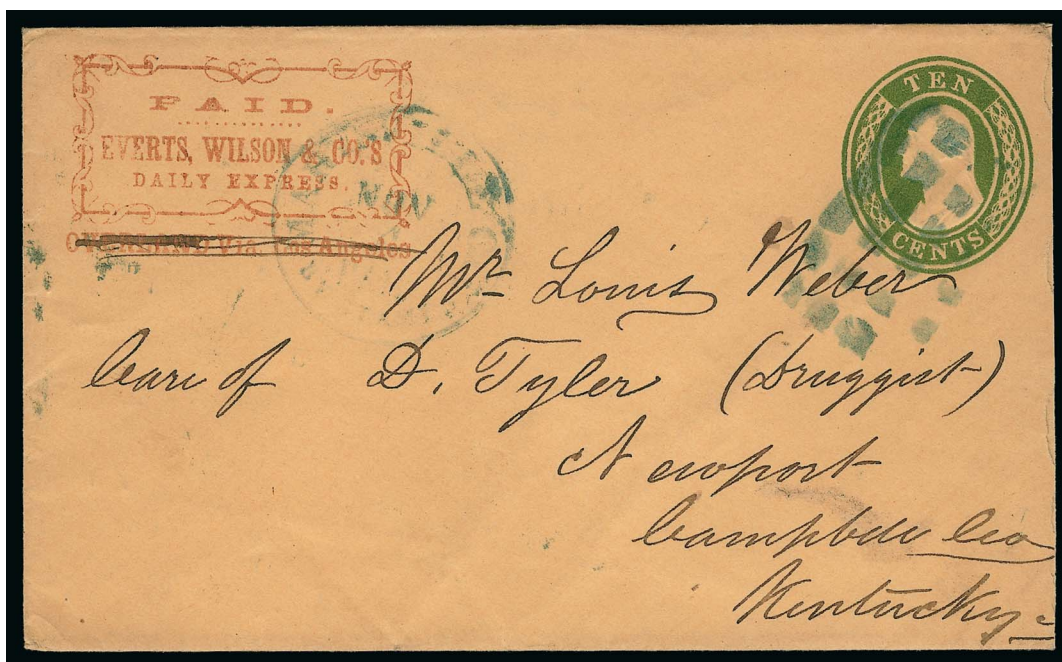 PAID.
EVERTS, WILSON & CO.'S
DAILY EXPRESS.
OVERLAND Via Los Angeles
TEN
CENTS
NOV
Mr Louis Weber
Care of D. Tyler (Druggist)
Newport
Campbell Co
Kentucky